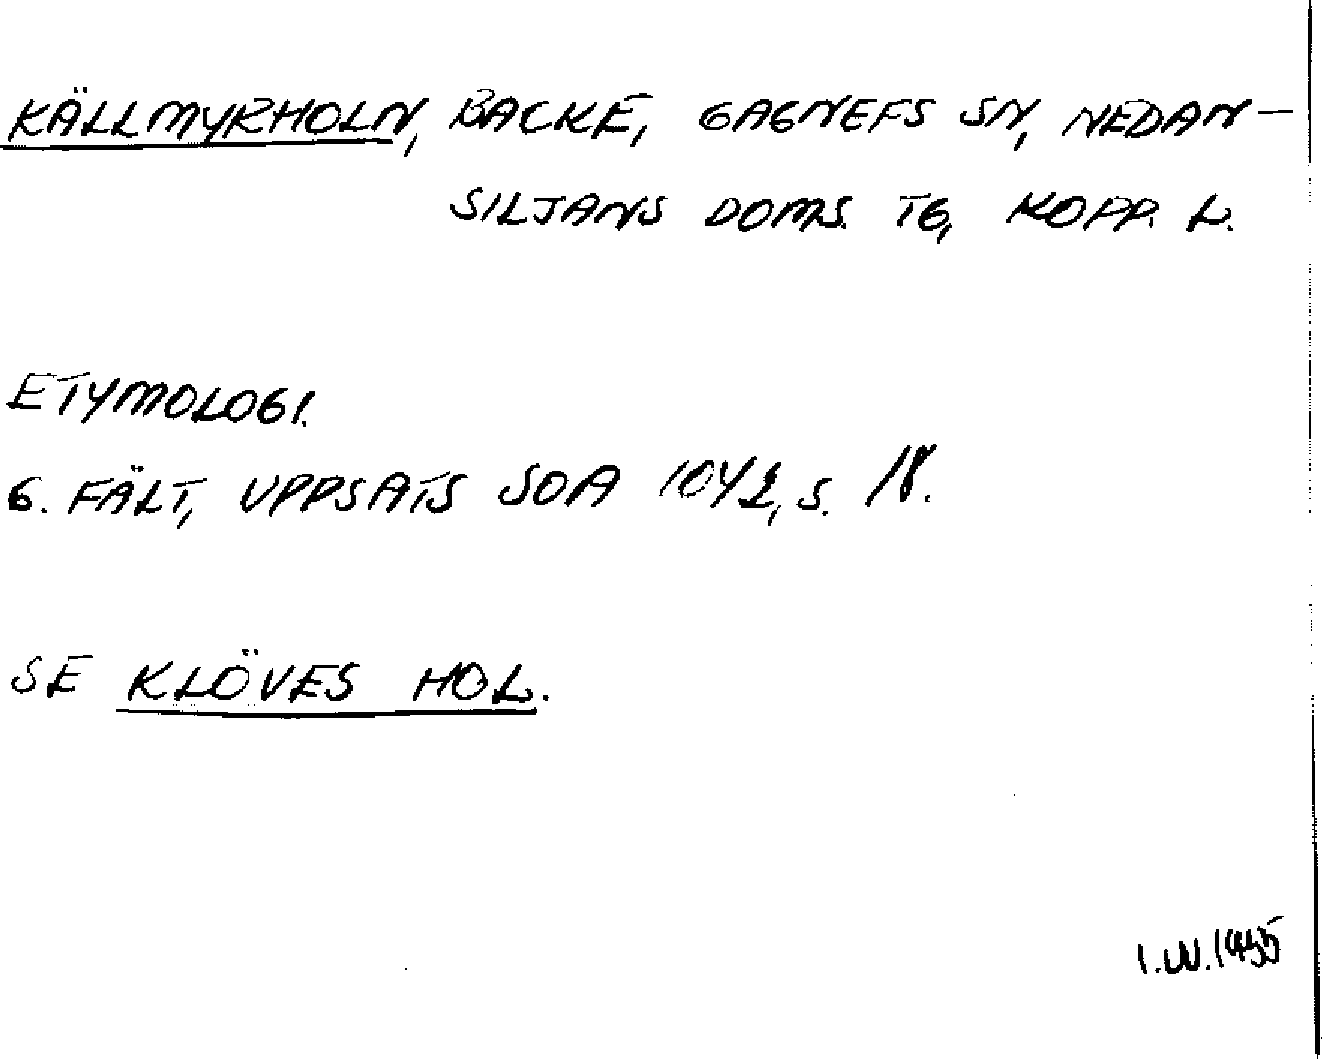 KÄLLMYRHOLN, BACKE, GAGNEFS SN, NEDAN-
SILJANS DOMS. TG, KOPP. L.
ETYMOLOGI.
G. FÄLT, UPPSATS SOA 1042, S. 18.
SE KLÖVES HOL.
I.W. 1955